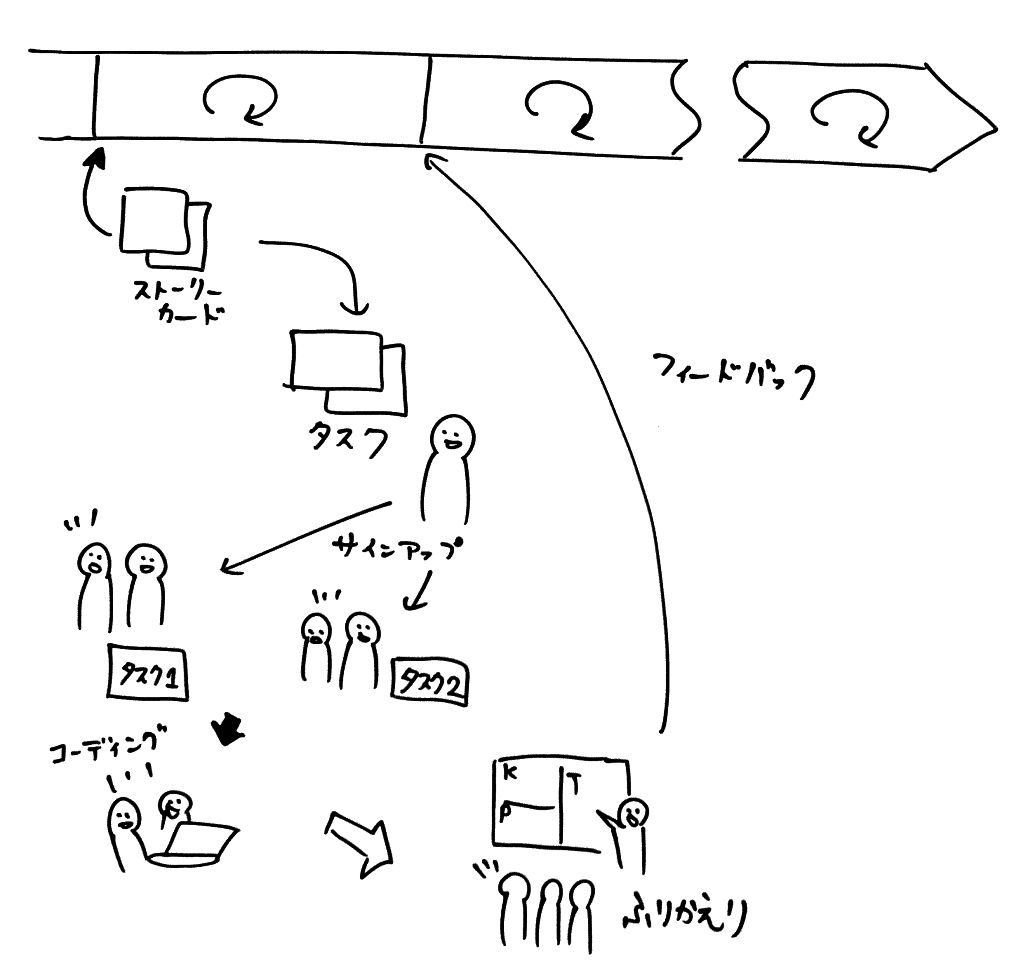 ストーリー
カード
フィードバック
タスク
サインアップ
タスク1
タスク2
コーディング
K
T
P
ふりかえり